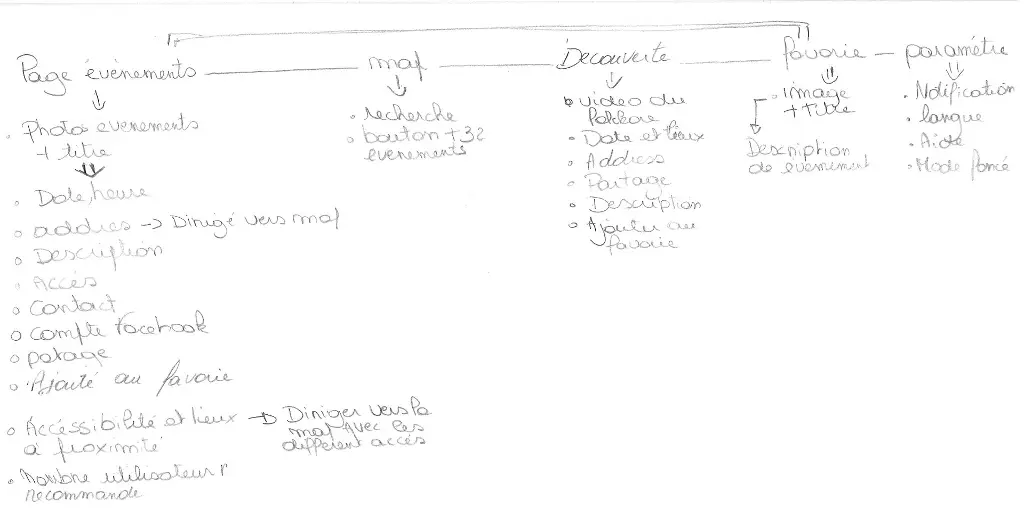 Page évènements
map
Découverte
favorie
paramètre
. Photos evenements
+ titre
. Date, heure
o addres -> Dirigé vers map
o Description
o Accès
o Contact
o Compte facebook
o patage
o Ajouté au favorie
o Accéssibilité et lieux -> Diriger vers la
à proximité
map avec les
différent accès
. Nombre utilisateur
recommande
. recherche
o bouton +32
evenements
o video du
folklore
. Date et lieux
. Address
o Partage
o Description
o Ajouter au
favorie
. image
+ titre
Description
de evenement
. Notification
. langue
. Aide
. Mode foncé